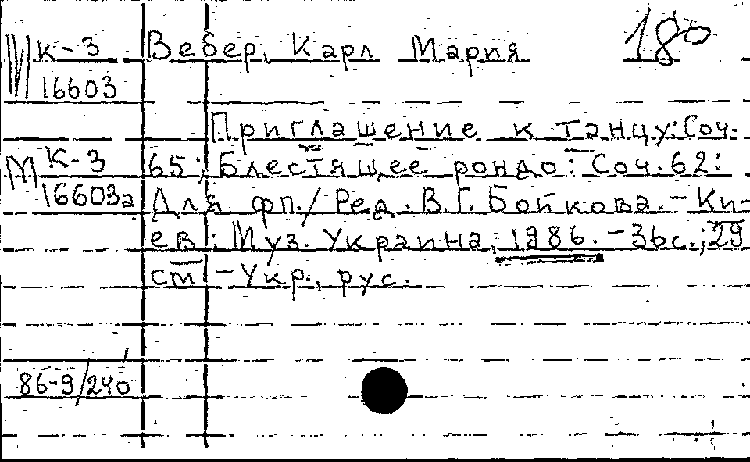 М К-3 Вебер, Карл Мария 180
16603
Приглашение к танцу: Соч.
М К-3 65; Блестящее рондо: Соч. 62:
16603а Для фп./Ред. В.Г. Бойкова. - Ки-
ев: Муз. Україна, 1986. - 36с.; 29
см - Укр., рус.
86-9/240